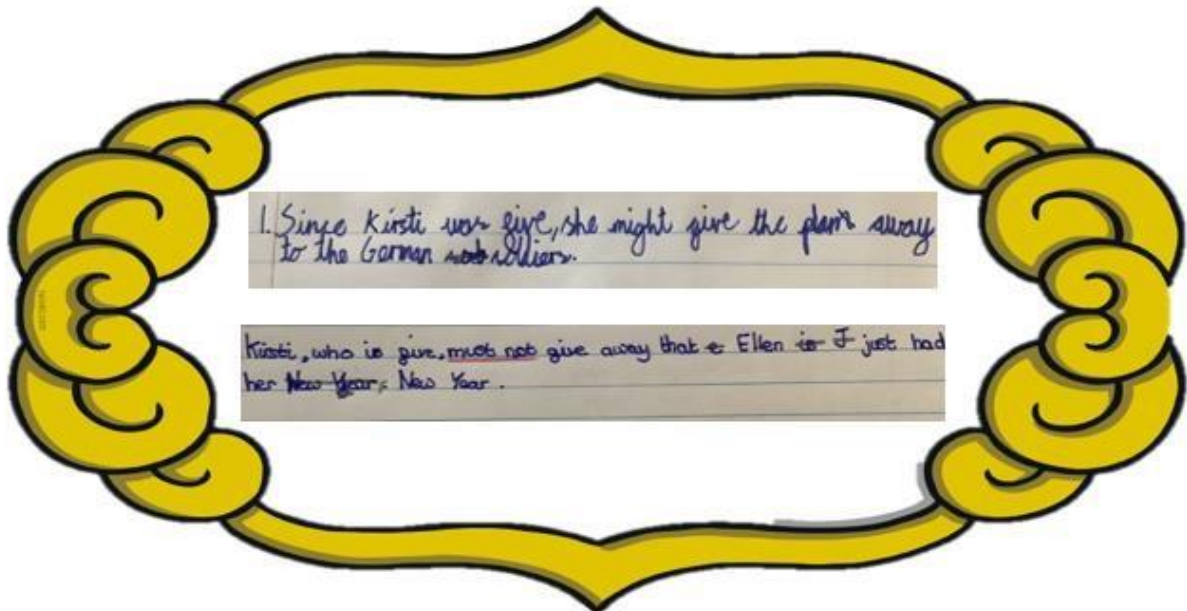 1. Since Kirsti was five, she might give the plans away
to the German soldiers.
Kirsti, who is five, must not give away that Ellen just had
her New Year.